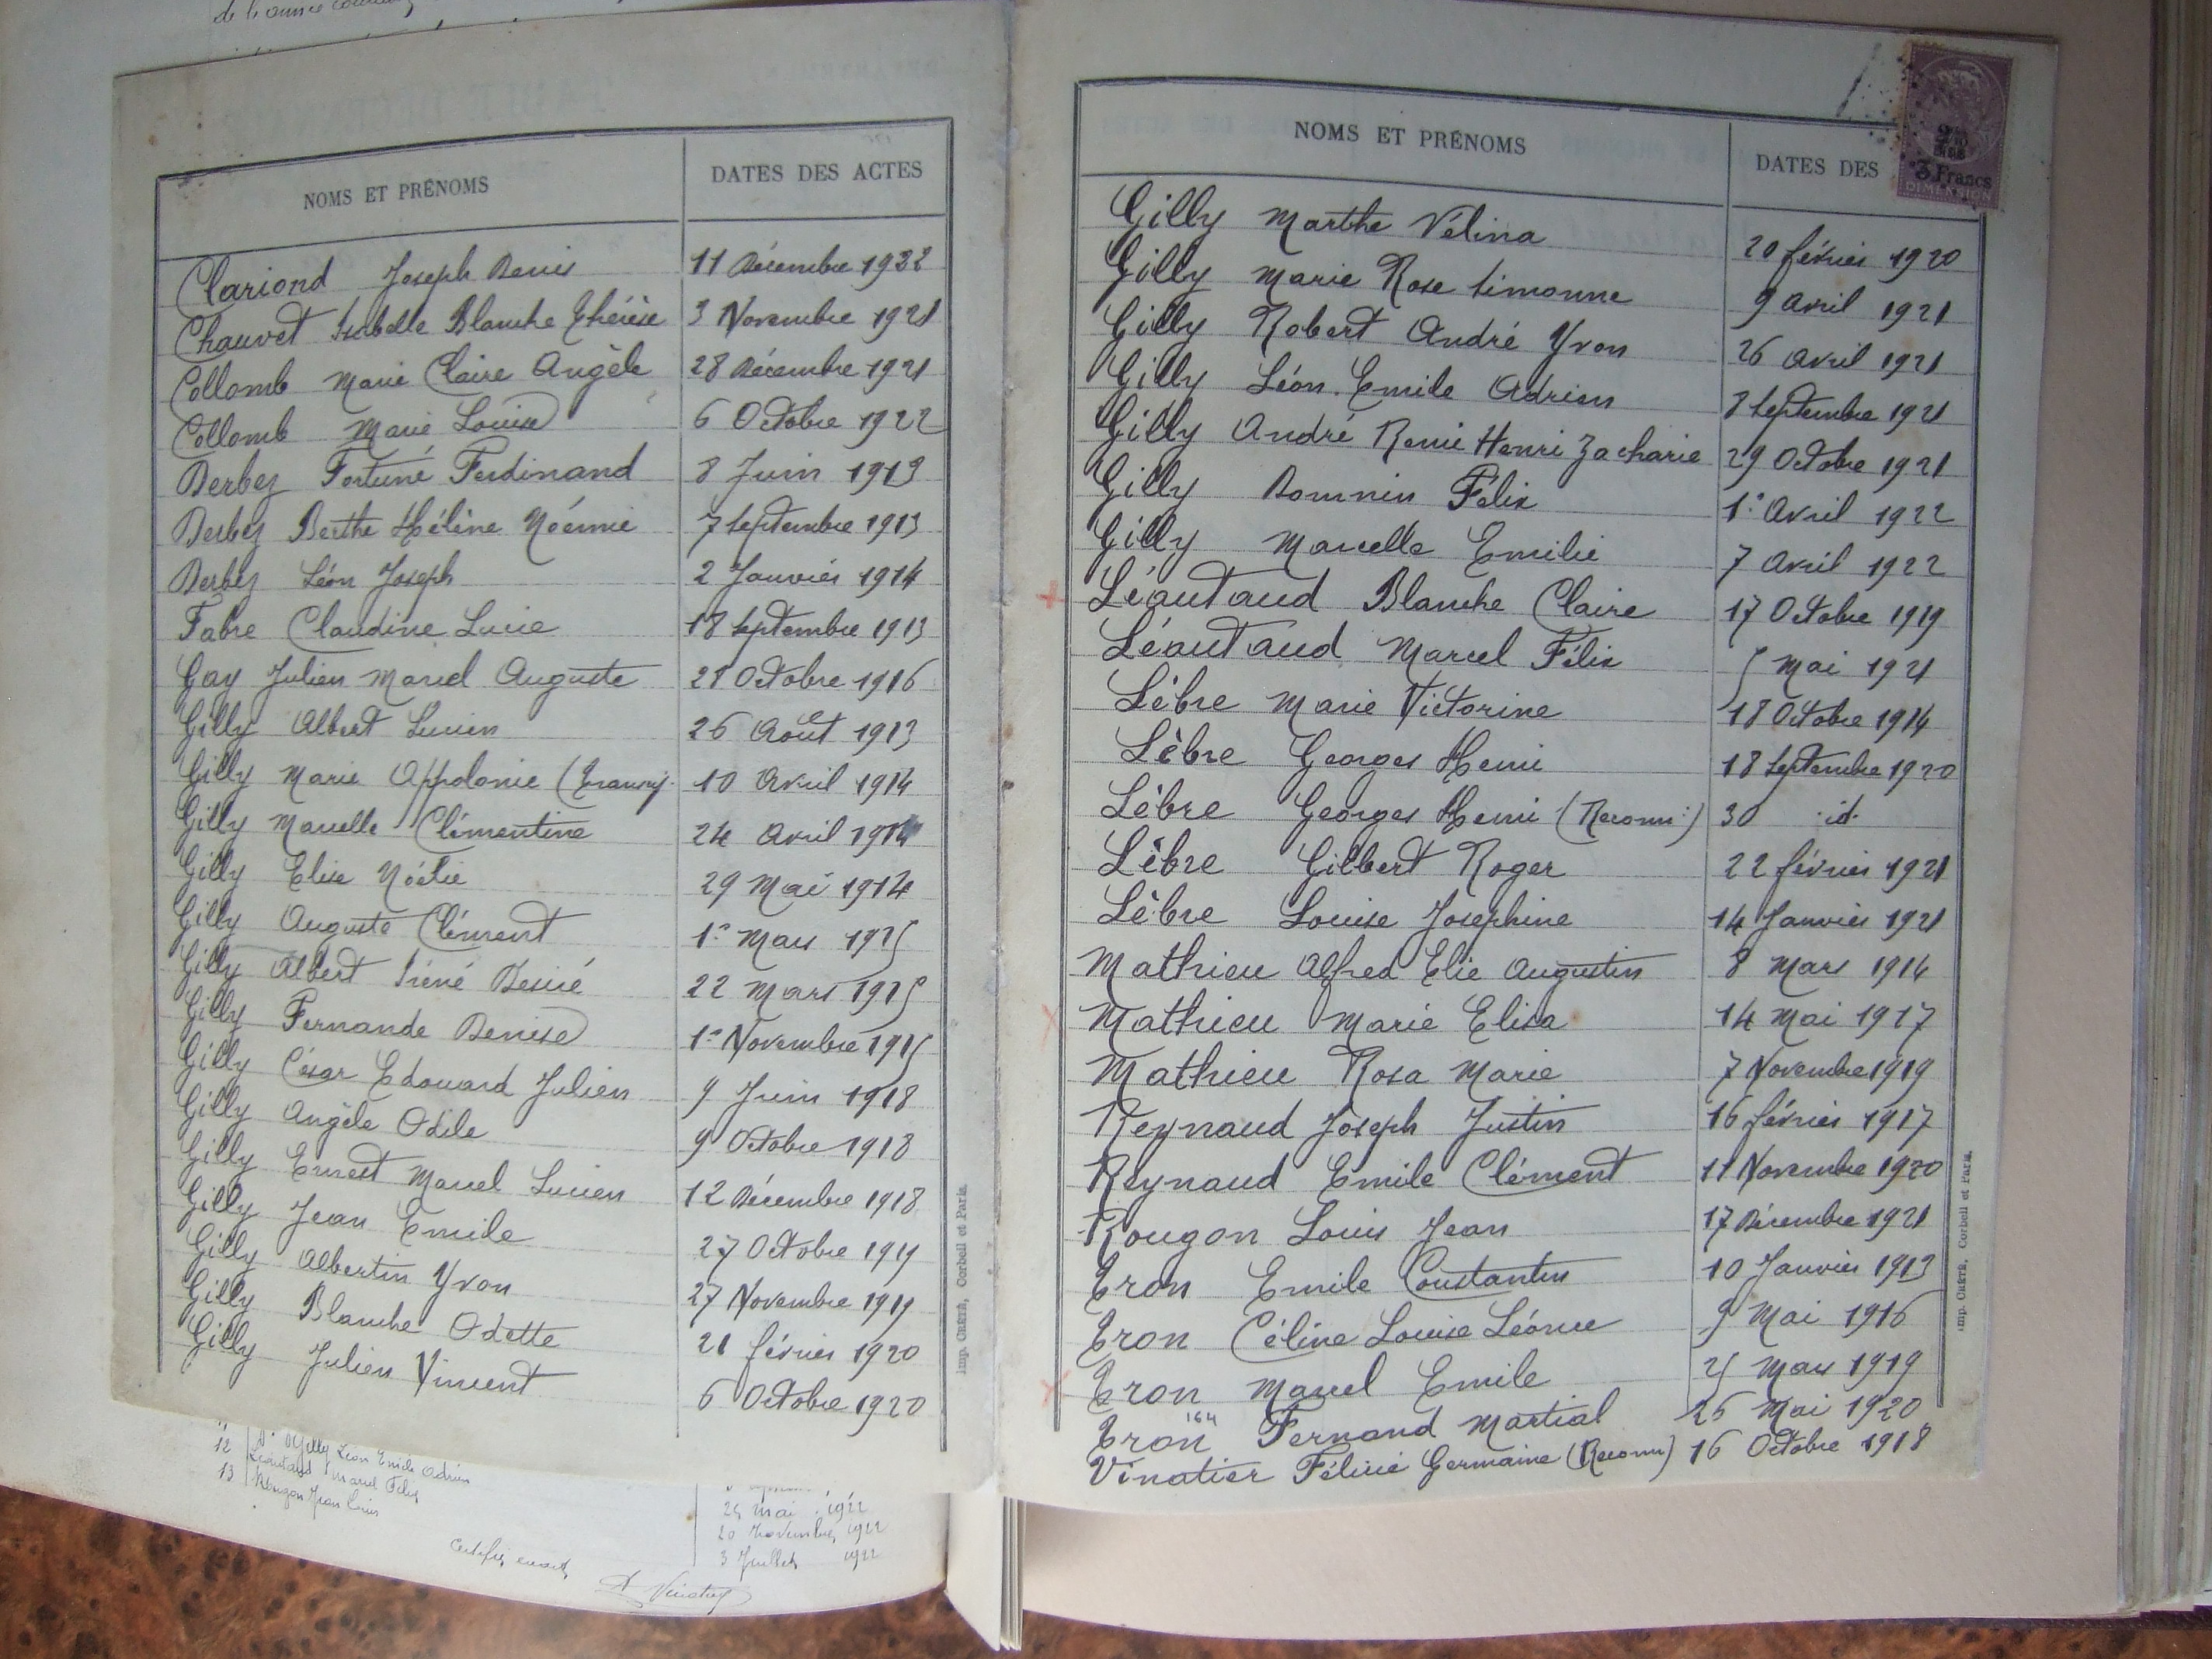 de l'année
NOMS ET PRÉNOMS DATES DES ACTES
Clariond Joseph Denis 11 Décembre 1922
Chauvet Isabelle Blanche Thérèse 3 Novembre 1921
Collomb Marie Claire Angèle 28 Décembre 1921
Collomb Marie Louise 6 Octobre 1922
Derbez Fortuné Ferdinand 8 Juin 1913
Derbez Berthe Hélène Noémie 7 Septembre 1913
Derbez Léon Joseph 2 Janvier 1914
Fabre Claudine Lucie 18 Septembre 1913
Gay Julien Marcel Auguste 21 Octobre 1916
Gilly Albert Lucien 26 Août 1913
Gilly Marie Appolonie (Transcr. 10 Avril 1914
Gilly Marcelle Clémentine 24 Avril 1914
Gilly Elise Noélie 29 Mai 1914
Gilly Auguste Clément 1er Mars 1915
Gilly Albert Iréné Désiré 22 Mars 1915
Gilly Fernande Denise 1er Novembre 1915
Gilly César Edouard Julien 9 Juin 1918
Gilly Angèle Odile 9 Octobre 1918
Gilly Ernest Marcel Lucien 12 Décembre 1918
Gilly Jean Emile 27 Octobre 1919
Gilly Albertin Yvon 27 Novembre 1919
Gilly Blanche Odette 21 février 1920
Gilly Julien Vincent 6 Octobre 1920
Imp. CRÉTÉ, Corbeil et Paris.
12 Gilly Léon Emile Adrien
Léautaud Marcel Félix 25 mai 1922
13 Rougon Jean Louis 20 Novembre 1922
3 Juillet 1922
Certifié exact
NOMS ET PRÉNOMS DATES DES
3 Francs
Gilly Marthe Vélina 20 février 1920
Gilly Marie Rose Simonne 9 Avril 1921
Gilly Robert André Yvon 26 Avril 1921
Gilly Léon Emile Adrien 8 Septembre 1921
Gilly André Remi Henri Zacharie 29 Octobre 1921
Gilly Domnin Félix 1er Avril 1922
Gilly Marcelle Emilie 7 Avril 1922
Léautaud Blanche Claire 17 Octobre 1919
Léautaud Marcel Félix 5 Mai 1921
Lèbre Marie Victorine 18 Octobre 1914
Lèbre Georges Henri 18 Septembre 1920
Lèbre Georges Henri (Reconn:) 30 id.
Lèbre Gilbert Roger 22 février 1921
Lèbre Louise Josephine 14 Janvier 1921
Mathieu Alfred Elie Augustin 8 Mars 1914
Mathieu Marie Elisa 14 Mai 1917
Mathieu Rosa Marie 7 Novembre 1919
Reynaud Joseph Justin 16 février 1917
Reynaud Emile Clément 11 Novembre 1920
Rougon Louis Jean 17 Décembre 1921
Tron Emile Constantin 10 Janvier 1913
Tron Céline Louise Léonce 9 Mai 1916
Tron Marcel Emile 25 Mars 1919
Tron Fernand Martial 26 Mai 1920
164
Vinatier Félicie Germaine (Reconn) 16 Octobre 1918
Imp. CRÉTÉ, Corbeil et Paris.